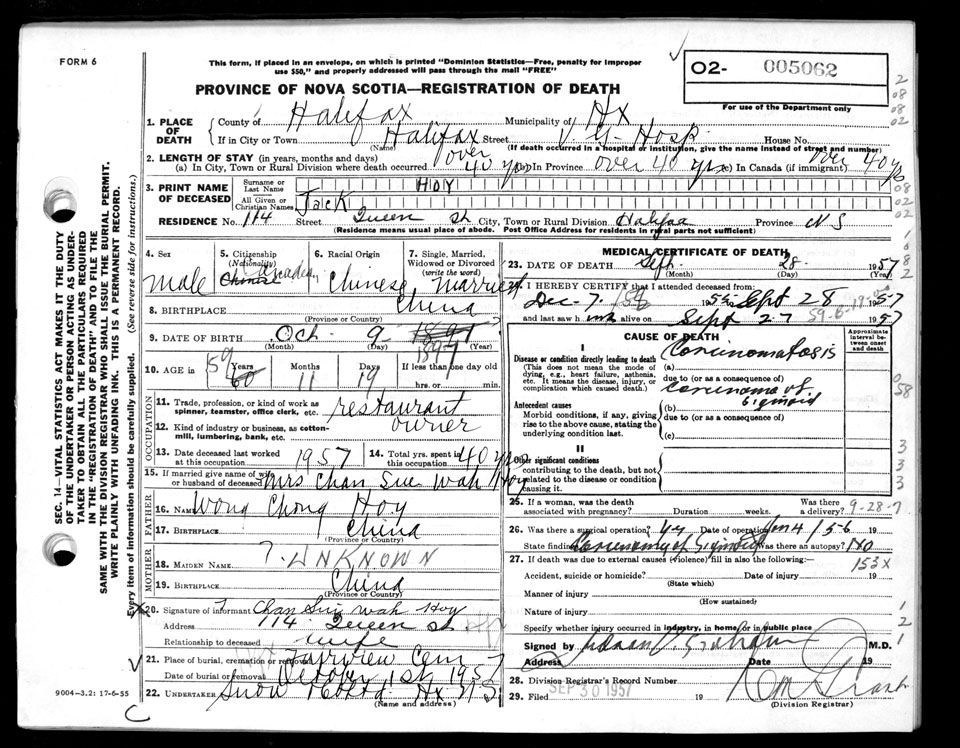 FORM 6
This form, if placed in an envelope, on which is printed "Dominion Statistics—Free, penalty for improper
use $50," and properly addressed will pass through the mail "FREE"
O2- 005062
For use of the Department only
PROVINCE OF NOVA SCOTIA—REGISTRATION OF DEATH
1. PLACE OF DEATH
County of Halifax Municipality of Hx
If in City or Town Halifax Street V. G. Hosp. House No.
(Name) (If death occurred in a hospital or institution, give the name instead of street and number)
2. LENGTH OF STAY (in years, months and days)
(a) In City, Town or Rural Division where death occurred over 40 yrs (b) In Province over 40 yrs (c) In Canada (if immigrant) over 40 y
3. PRINT NAME OF DECEASED
Surname or Last Name HOY
All Given or Christian Names Jack
RESIDENCE No. 114 Street Queen St City, Town or Rural Division Halifax Province N S
(Residence means usual place of abode. Post Office Address for residents in rural parts not sufficient)
4. Sex male
5. Citizenship (Nationality) Chinese Canadian
6. Racial Origin Chinese
7. Single, Married, Widowed or Divorced (write the word) married
8. BIRTHPLACE China
(Province or Country)
9. DATE OF BIRTH Oct 9 1897 1897
(Month) (Day) (Year)
10. AGE in 59 60 Years 11 Months 19 Days If less than one day old hrs. or min.
OCCUPATION
11. Trade, profession, or kind of work as spinner, teamster, office clerk, etc. restaurant
12. Kind of industry or business, as cotton-mill, lumbering, bank, etc. owner
13. Date deceased last worked at this occupation 1957
14. Total yrs. spent in this occupation 40 yrs
15. If married give name of wife or husband of deceased Mrs Chan Sue Wah Hoy
FATHER
16. Name Wong Chong Hoy
17. BIRTHPLACE China
(Province or Country)
MOTHER
18. MAIDEN NAME ? UNKNOWN
19. BIRTHPLACE China
(Province or Country)
X 20. Signature of informant Chan Sui Wah Hoy
Address 114 Queen St
Relationship to deceased wife
21. Place of burial, cremation or removal Fairview Cem
Date of burial or removal October 1st 1957
22. UNDERTAKER Snow Hx N.S.
(Name and address)
9004-3.2: 17-6-55
SEC. 14—VITAL STATISTICS ACT MAKES IT THE DUTY
OF THE UNDERTAKER OR PERSON ACTING AS UNDER-
TAKER TO OBTAIN ALL THE PARTICULARS REQUIRED
IN THE "REGISTRATION OF DEATH" AND TO FILE THE
SAME WITH THE DIVISION REGISTRAR WHO SHALL ISSUE THE BURIAL PERMIT.
WRITE PLAINLY WITH UNFADING INK. THIS IS A PERMANENT RECORD.
Every item of information should be carefully supplied. (See reverse side for instructions.)
MEDICAL CERTIFICATE OF DEATH
23. DATE OF DEATH Sept. 28. 1957
(Month) (Day) (Year)
I HEREBY CERTIFY that I attended deceased from:
Dec-7 Sept 28 1957
and last saw h im alive on Sept 27 1957
CAUSE OF DEATH
Approximate interval between onset and death
I
Disease or condition directly leading to death
(This does not mean the mode of dying, e.g., heart failure, asthenia, etc. It means the disease, injury, or complication which caused death.)
(a) Carcinomatosis
due to (or as a consequence of)
Carcinoma of Sigmoid
Antecedent causes
Morbid conditions, if any, giving rise to the above cause, stating the underlying condition last.
(b)
due to (or as a consequence of)
(c)
II
Other significant conditions
contributing to the death, but not related to the disease or condition causing it.
25. If a woman, was the death associated with pregnancy? Duration weeks. Was there a delivery? 9-28-7
26. Was there a surgical operation? Yes Date of operation Jan 4 / 56 19
State findings Carcinoma of Sigmoid Was there an autopsy? No
27. If death was due to external causes (violence) fill in also the following:— 153X
Accident, suicide or homicide? Date of injury 19
(State which)
Manner of injury
(How sustained)
Nature of injury
Specify whether injury occurred in industry, in home, or in public place
Signed by M.D.
Address Date 19
28. Division Registrar's Record Number
29. Filed SEP 30 1957 19
(Division Registrar)